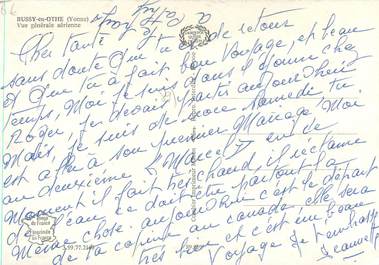 BUSSY-en-OTHE (Yonne)
Vue générale aérienne
Chère tante
sans doute que tu es de retour
et que tu a fait bon voyage, et beau
temps, Moi je suis dans l'Yonne chez
Roger, je devais partir aujourd'hui
Mais, je suis de noce samedi tu
est allée a son premier Mariage Moi
au deuxième Marcel est de
Moment il fait très chaud, il réclame
de l'eau ce doit être partout la
Même chose, aujourd'hui c'est le départ
de ta copine au canada, elle sera
très bien et c'est un beau
Voyage je t'embrasse
Jeannette